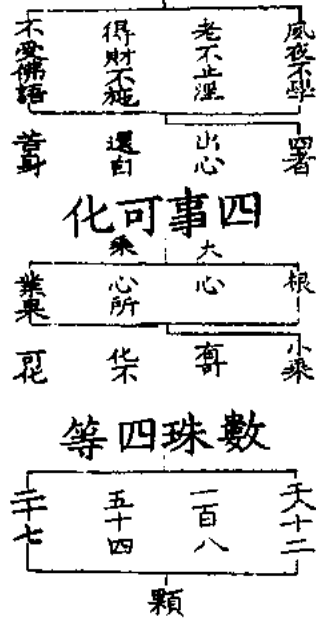 夙夜不學
老不止淫
得財不施
不受佛語
四者
出心
還自
苦身
四事可化
大乘
根
心
心所
業果
小乘
有可
化不
可化
數珠四等
千八十二
一百八
五十四
二十七
顆